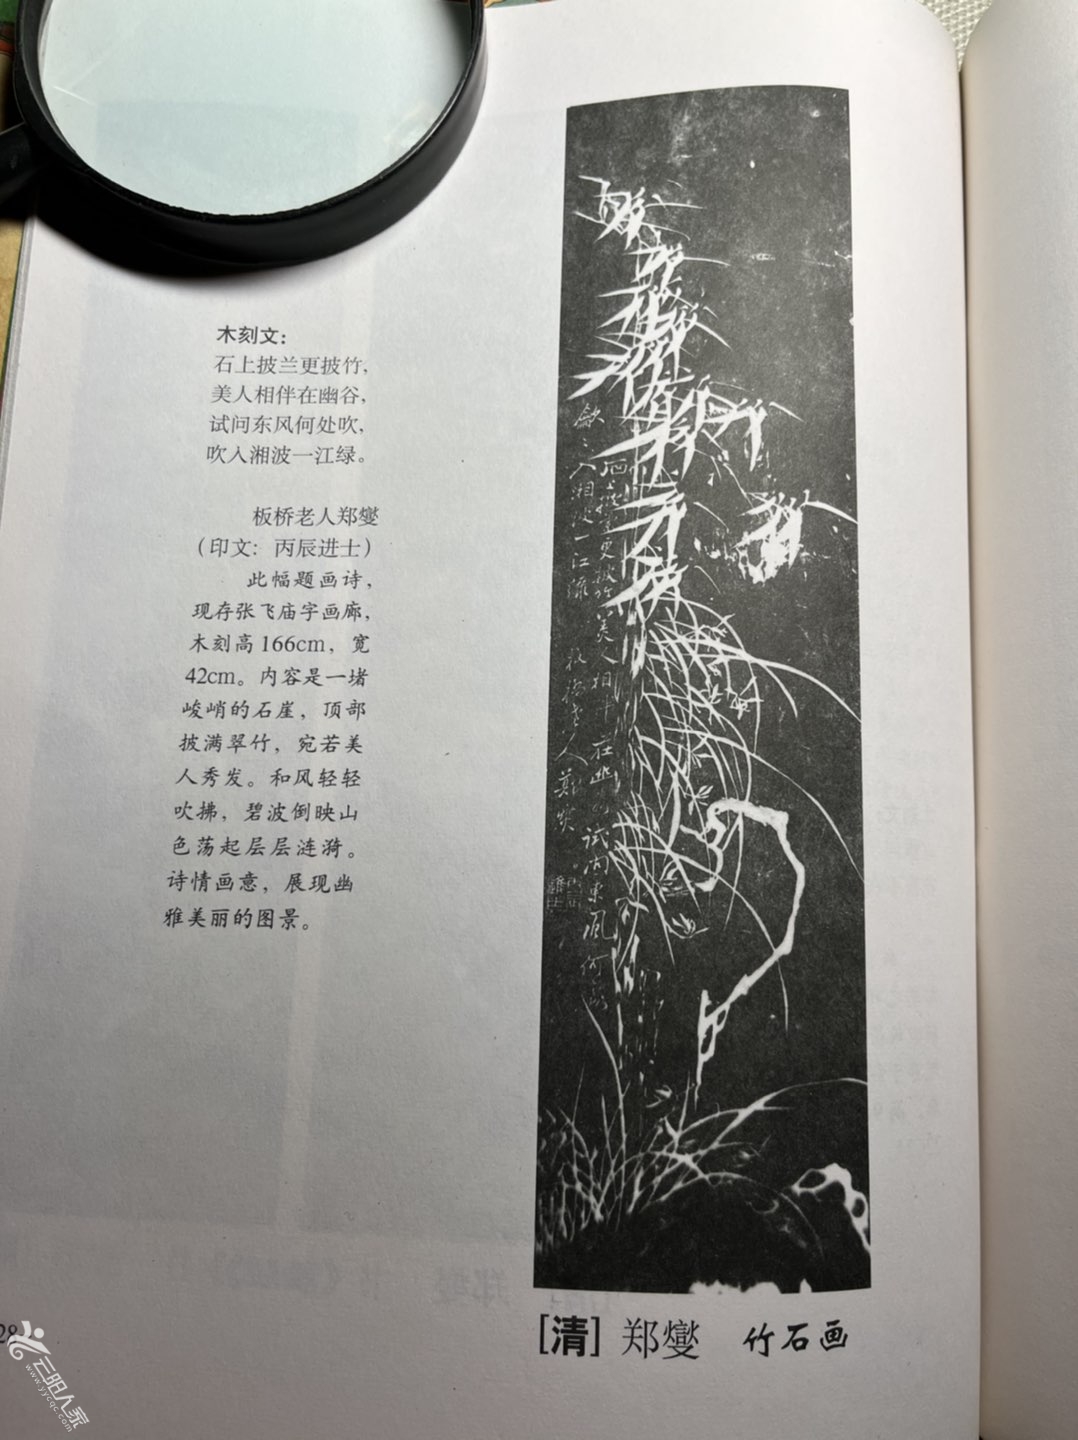 木刻文：
石上披兰更披竹，
美人相伴在幽谷，
试问东风何处吹，
吹入湘波一江绿。
板桥老人郑燮
（印文：丙辰进士）
此幅题画诗，
现存张飞庙字画廊，
木刻高166cm，宽
42cm。内容是一堵
峻峭的石崖，顶部
披满翠竹，宛若美
人秀发。和风轻轻
吹拂，碧波倒映山
色荡起层层涟漪。
诗情画意，展现幽
雅美丽的图景。
試问東風何
入湘波一江綠
板橋老人鄭燮
[清] 郑燮 竹石画
28
云阳人家
www.yycqc.com